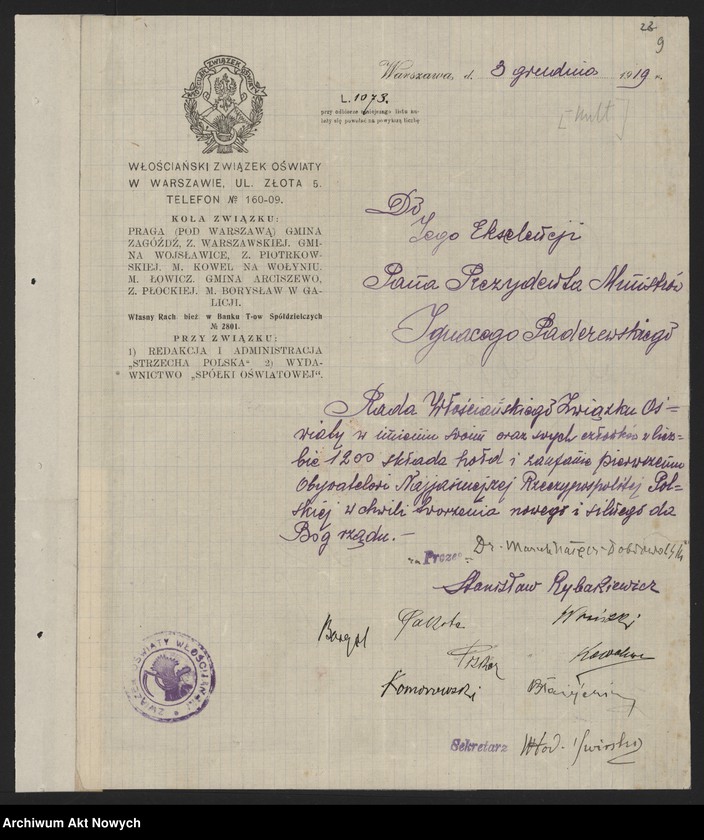 23.
9
Warszawa, d. 3 grudnia 1919 r.
L. 1073.
przy odbiorze niniejszego listu na-
leży się powołać na powyższą liczbę
[Kult]
WŁOŚCIAŃSKI ZWIĄZEK OŚWIATY
W WARSZAWIE, UL. ZŁOTA 5.
TELEFON № 160-09.
KOŁA ZWIĄZKU:
PRAGA (POD WARSZAWĄ) GMINA
ZAGÓŹDŹ, Z. WARSZAWSKIEJ. GMI-
NA WOJSŁAWICE, Z. PIOTRKOW-
SKIEJ. M. KOWEL NA WOŁYNIU.
M. ŁOWICZ. GMINA ARCISZEWO,
Z. PŁOCKIEJ. M. BORYSŁAW W GA-
LICJI.
Własny Rach bież w Banku T-ow Spółdzielczych
№ 2801.
PRZY ZWIĄZKU:
1) REDAKCJA I ADMINISTRACJA
„STRZECHA POLSKA" 2) WYDA-
WNICTWO „SPÓŁKI OŚWIATOWEJ".
Do
Jego Ekselencji
Pana Prezydenta Ministrów
Ignacego Paderewskiego
Rada Włościańskiego Związku Oś-
wiaty w imieniu swoim oraz swych członków w licz-
bie 1200 składa hołd i zaufanie pierwszemu
Obywatelowi Najjaśniejszej Rzeczypospolitej Pol-
skiej w chwili tworzenia nowego i silnego da
Bóg rządu.-
Prezes Dr. Marek
Stanisław Rybakiewicz
Komorowski
Sekretarz Włod.
ZWIĄZEK OŚWIATY WŁOŚCIAŃSKI
Archiwum Akt Nowych